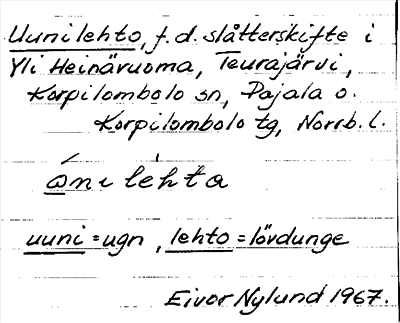 Uunilehto, f.d. slåtterskifte i
Yli Heinävuoma, Teurajärvi,
Korpilombolo sn, Pajala o.
Korpilombolo tg, Norrb. l.
ωni lehta
uuni = ugn, lehto = lövdunge
Eivor Nylund 1967.